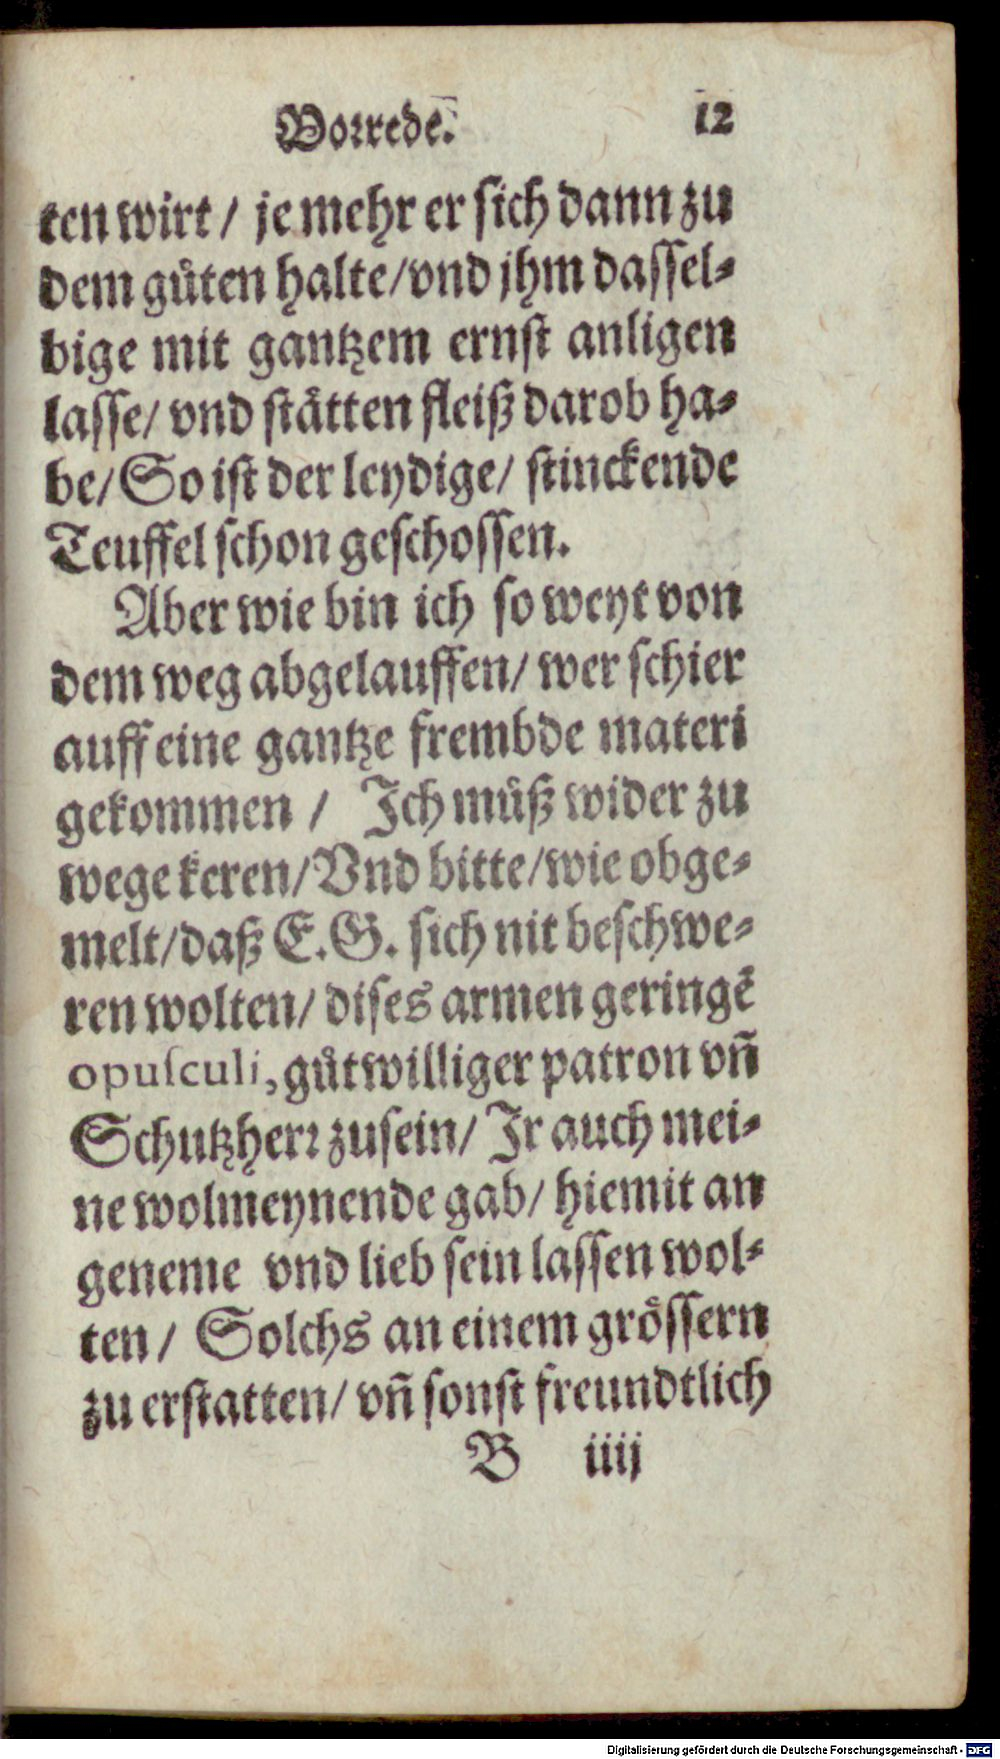 Vorrede. 12
ten wirt / je mehr er sich dann zu
dem guͤten halte/vnd jhm dassel⸗
bige mit gantzem ernst anligen
lasse/ vnd staͤtten fleiß darob ha⸗
be/ So ist der leydige/ stinckende
Teuffel schon geschossen.
Aber wie bin ich so weyt von
dem weg abgelauffen/ wer schier
auff eine gantze frembde materi
gekommen / Ich muͤß wider zu
wege keren/Vnd bitte/wie obge⸗
melt/daß E.G. sich nit beschwe⸗
ren wolten/ dises armen geringē
opusculi, guͤtwilliger patron vñ
Schutzherr zusein/ Ir auch mei⸗
ne wolmeynende gab/ hiemit an
geneme vnd lieb sein lassen wol⸗
ten / Solchs an einem groͤssern
zu erstatten/ vñ sonst freundtlich
B iiij
Digitalisierung gefördert durch die Deutsche Forschungsgemeinschaft - DFG